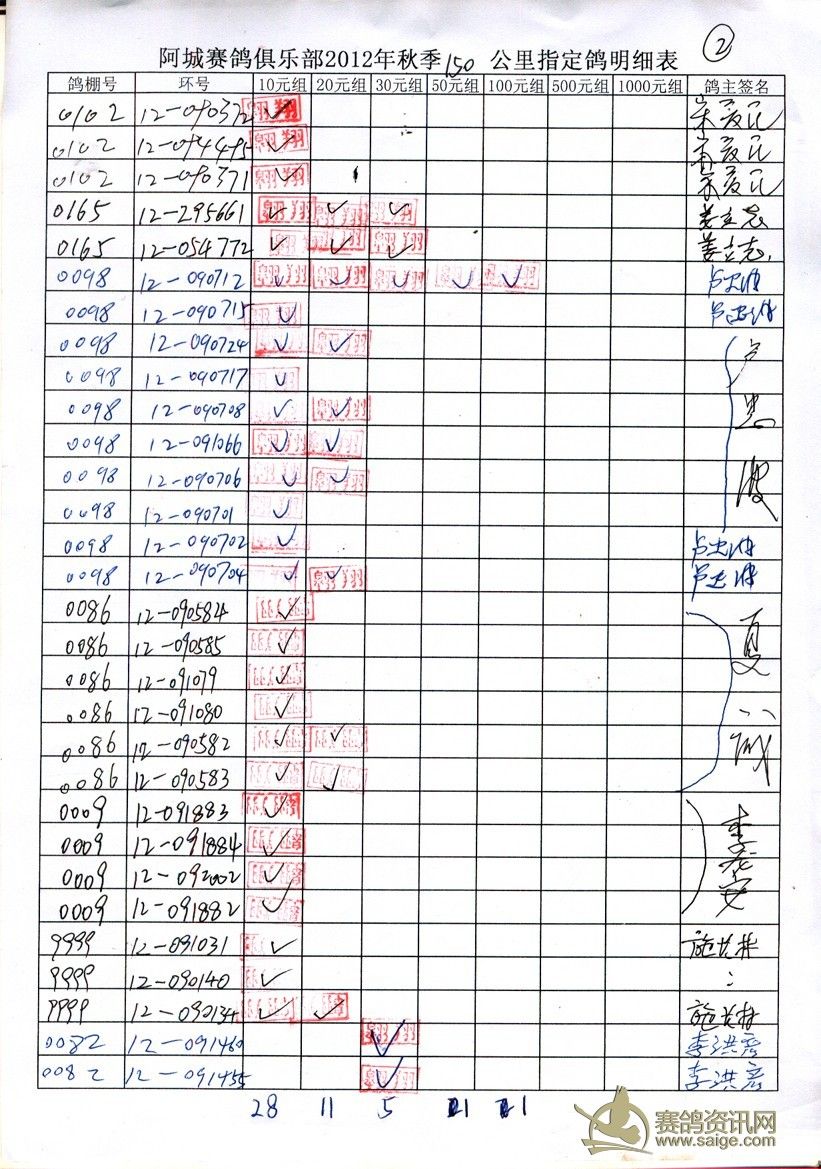 ②
阿城赛鸽俱乐部2012年秋季150公里指定鸽明细表
鸽棚号 环号 10元组 20元组 30元组 50元组 100元组 500元组 1000元组 鸽主签名
0102 12-090372 ✓
0102 12-094495 ✓
0102 12-090371 ✓
0165 12-295661 ✓ ✓ ✓ 姜立志
0165 12-054772 ✓ ✓ ✓ 姜立志
0098 12-090712 ✓ ✓ ✓ ✓ ✓
0098 12-090715 ✓
0098 12-090724 ✓ ✓
0098 12-090717 ✓
0098 12-090708 ✓ ✓
0098 12-091066 ✓ ✓
0098 12-090706 ✓ ✓
0098 12-090701 ✓
0098 12-090702 ✓
0098 12-090704 ✓ ✓
0086 12-090584 ✓
0086 12-090585 ✓
0086 12-091079 ✓
0086 12-091080 ✓
0086 12-090582 ✓ ✓
0086 12-090583 ✓ ✓
0009 12-091883 ✓
0009 12-091884 ✓
0009 12-092002 ✓
0009 12-091882 ✓
9999 12-091031 ✓
9999 12-090140 ✓
9999 12-090134 ✓ ✓
0082 12-091460 ✓ 李洪彦
0082 12-091455 ✓ 李洪彦
28 11 5 1 1
赛鸽资讯网
www.saige.com